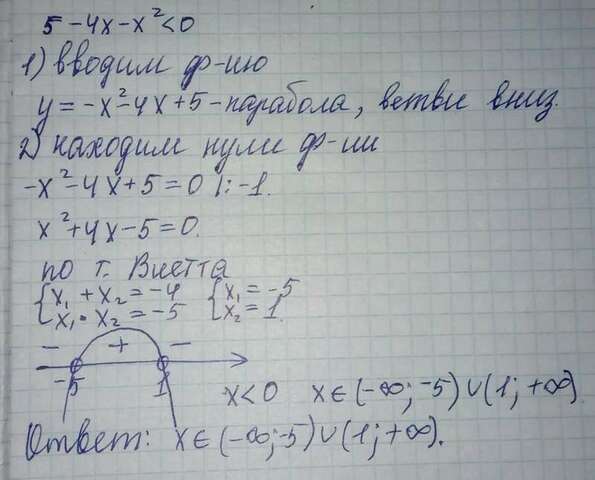 5 - 4x - x² < 0
1) вводим ф-ию
y = -x² - 4x + 5 - парабола, ветви вниз.
2) находим нули ф-ии
-x² - 4x + 5 = 0 |: -1.
x² + 4x - 5 = 0.
по т. Виетта
{x₁ + x₂ = -4 {x₁ = -5
{x₁ · x₂ = -5 {x₂ = 1.
- + -
-5 1
x < 0 x ∈ (-∞; -5) ∪ (1; +∞)
Ответ: x ∈ (-∞; -5) ∪ (1; +∞).